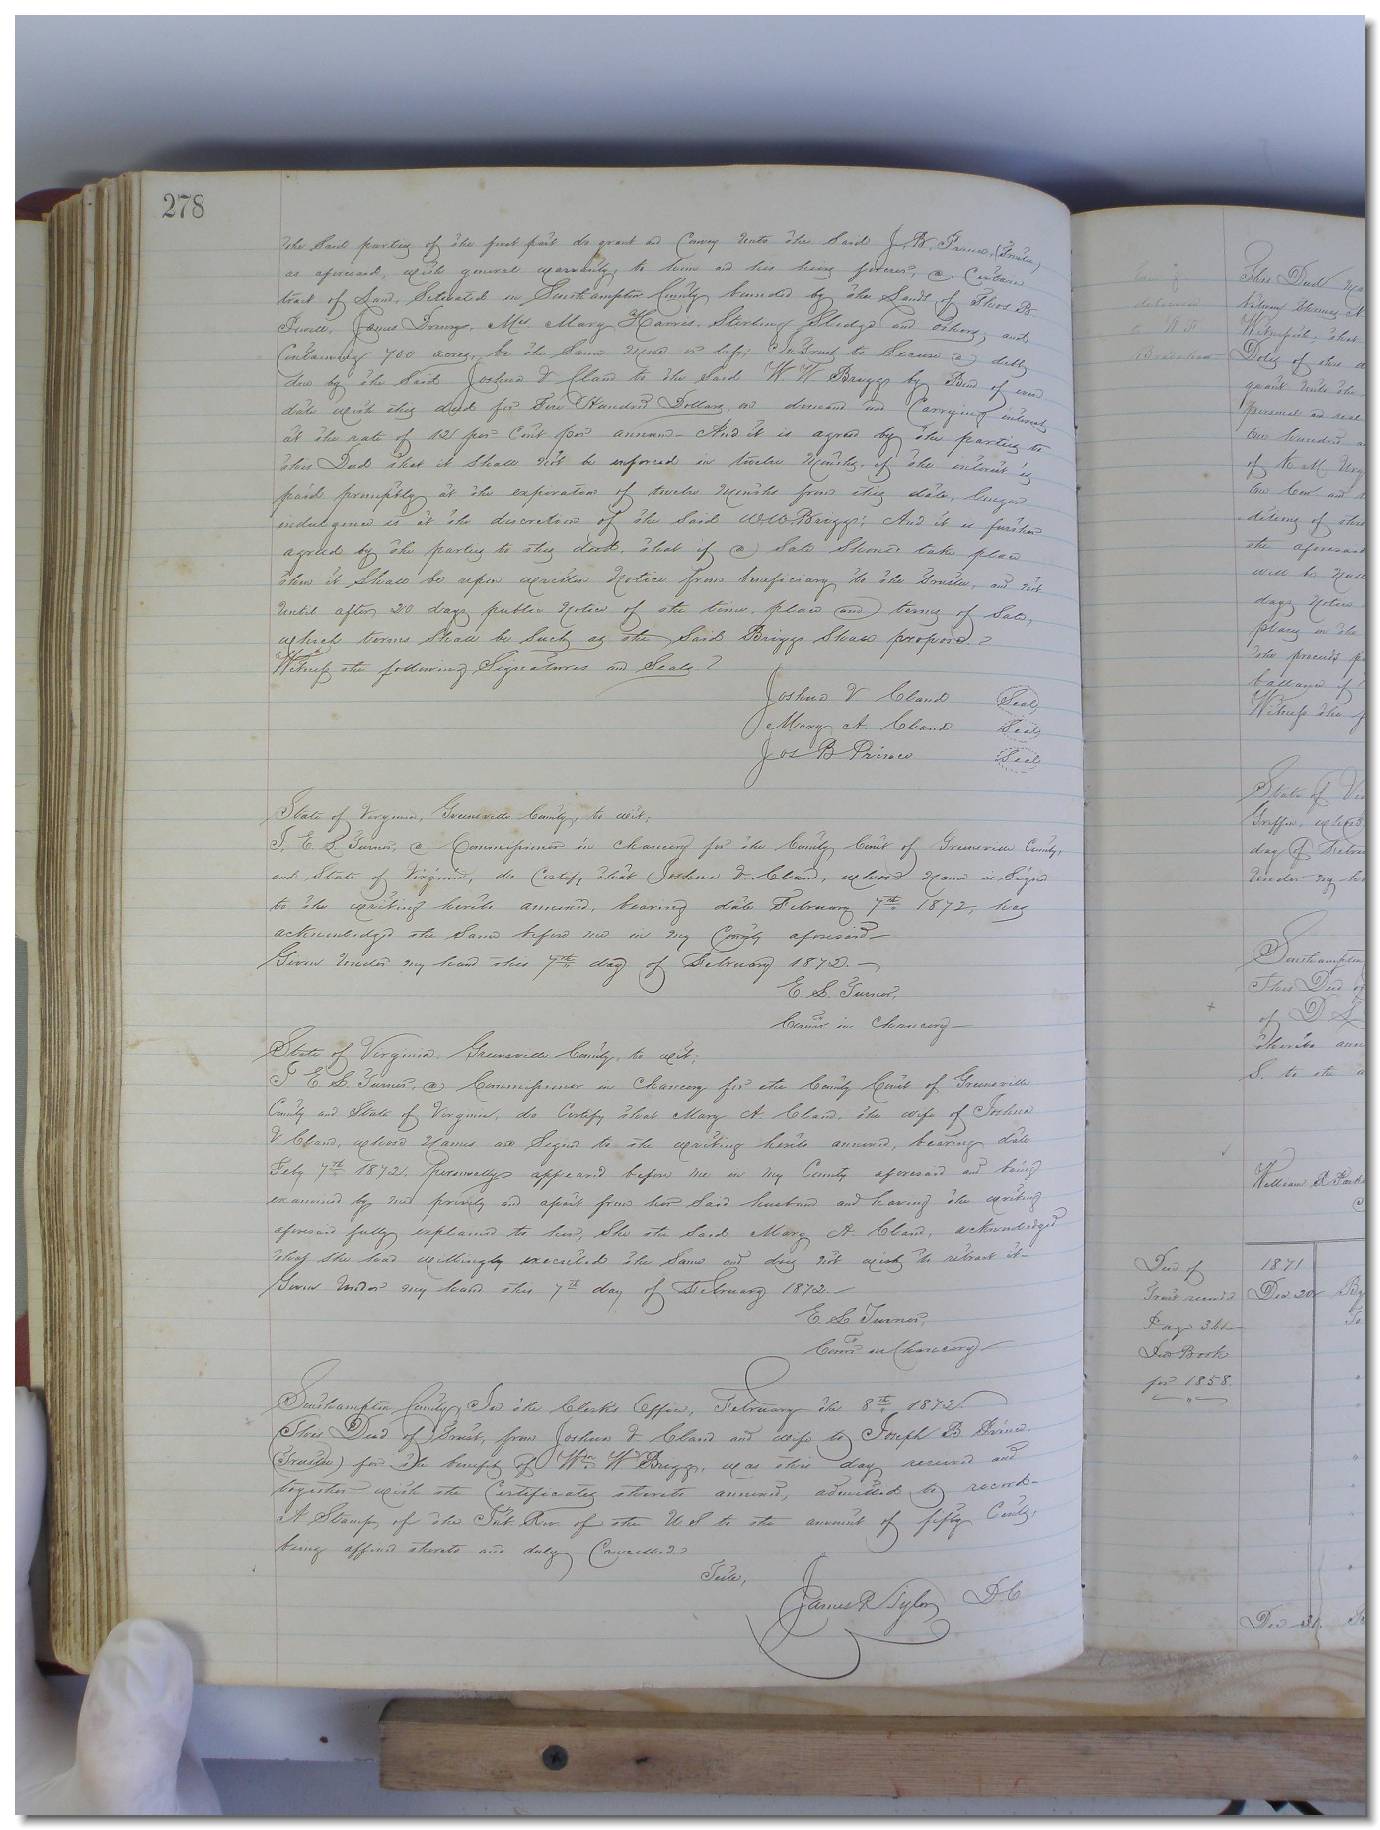 278
the Said parties of the first part do grant and Convey Unto the Said J. B. Prince, (Trustee)
as aforesaid, with general warranty, to him and his heirs forever, a Certain
tract of Land, Situated in Southampton County bounded by the Lands of Thos B.
James Mrs Mary Harris, Sterling Sledge and others, and
Containing 700 acres, be the Same more or less; In Trust to Secure a debt
due by the Said Joshua V Cland to the Said W W Briggs by Bond of even
date with this deed for Five Hundred Dollars, on demand and Carrying interest
at the rate of 12 per Cent per annum - And it is agreed by the parties to
this Deed that it Shall not be enforced in twelve months, if the interest is
paid promptly at the expiration of twelve months from this date, longer
indulgence is at the discretion of the Said WW Briggs; And it is further
agreed by the parties to this deed, that if a Sale Should take place
then it Shall be upon written Notice from beneficiary to the Trustee, and not
until after 20 days public Notice of the time, place and terms of Sale,
which terms Shall be Such as the Said Briggs Shall propose.
Witness the following Signatures and Seals
Joshua V Cland Seal
Mary A. Cland Seal
Jos B Prince Seal
State of Virginia, Greensville County, to wit;
I, E. S. Turner, a Commissioner in Chancery for the County Court of Greensville County,
and State of Virginia, do Certify that Joshua V. Cland, whose Name is Signed
to the writing hereto annexed, bearing date February 7th 1872, has
acknowledged the Same before me in my County aforesaid -
Given Under my hand this 7th day of February 1872. -
E. S. Turner,
Comr in Chancery -
State of Virginia. Greensville County, to wit;
I E S. Turner, a Commissioner in Chancery for the County Court of Greensville
County and State of Virginia, do Certify that Mary A. Cland, the wife of Joshua
V Cland, whose Names are Signed to the writing hereto annexed, bearing date
Feby 7th 1872. Personally appeared before me in my County aforesaid and being
examined by me privily and apart from her Said husband and having the writing
aforesaid fully explained to her, She the Said Mary A. Cland, acknowledged
that She had willingly executed the Same and does not wish to retract it -
Given Under my hand this 7th day of February 1872. -
E. S. Turner,
Comr in Chancery -
Southampton County, In the Clerks Office, February the 8th 1872.
This Deed of Trust, from Joshua V Cland and wife to Joseph B Prince
(Trustee) for the benefit of Wm W Briggs, was this day received and
together with the Certificates thereto annexed, admitted to record -
A Stamp of the Int. Rev. of the U.S to the amount of fifty Cents,
being affixed thereto and duly Cancelled.
Teste,
James R Tyler D.C
delivered
to
This Deed
Witnesseth, that
Doth of this
grant Unto the
personal and real
two hundred
of
the aforesaid
will be
days Notice
place in the
the proceeds
balance of
Witness the
State of
Griffin,
day of
Under my
Southampton
This Deed
of
thereto
S. to the
William
Deed of
Trust record
Page
Deed Book
for 1858.
1871
Dec 20
Dec 31